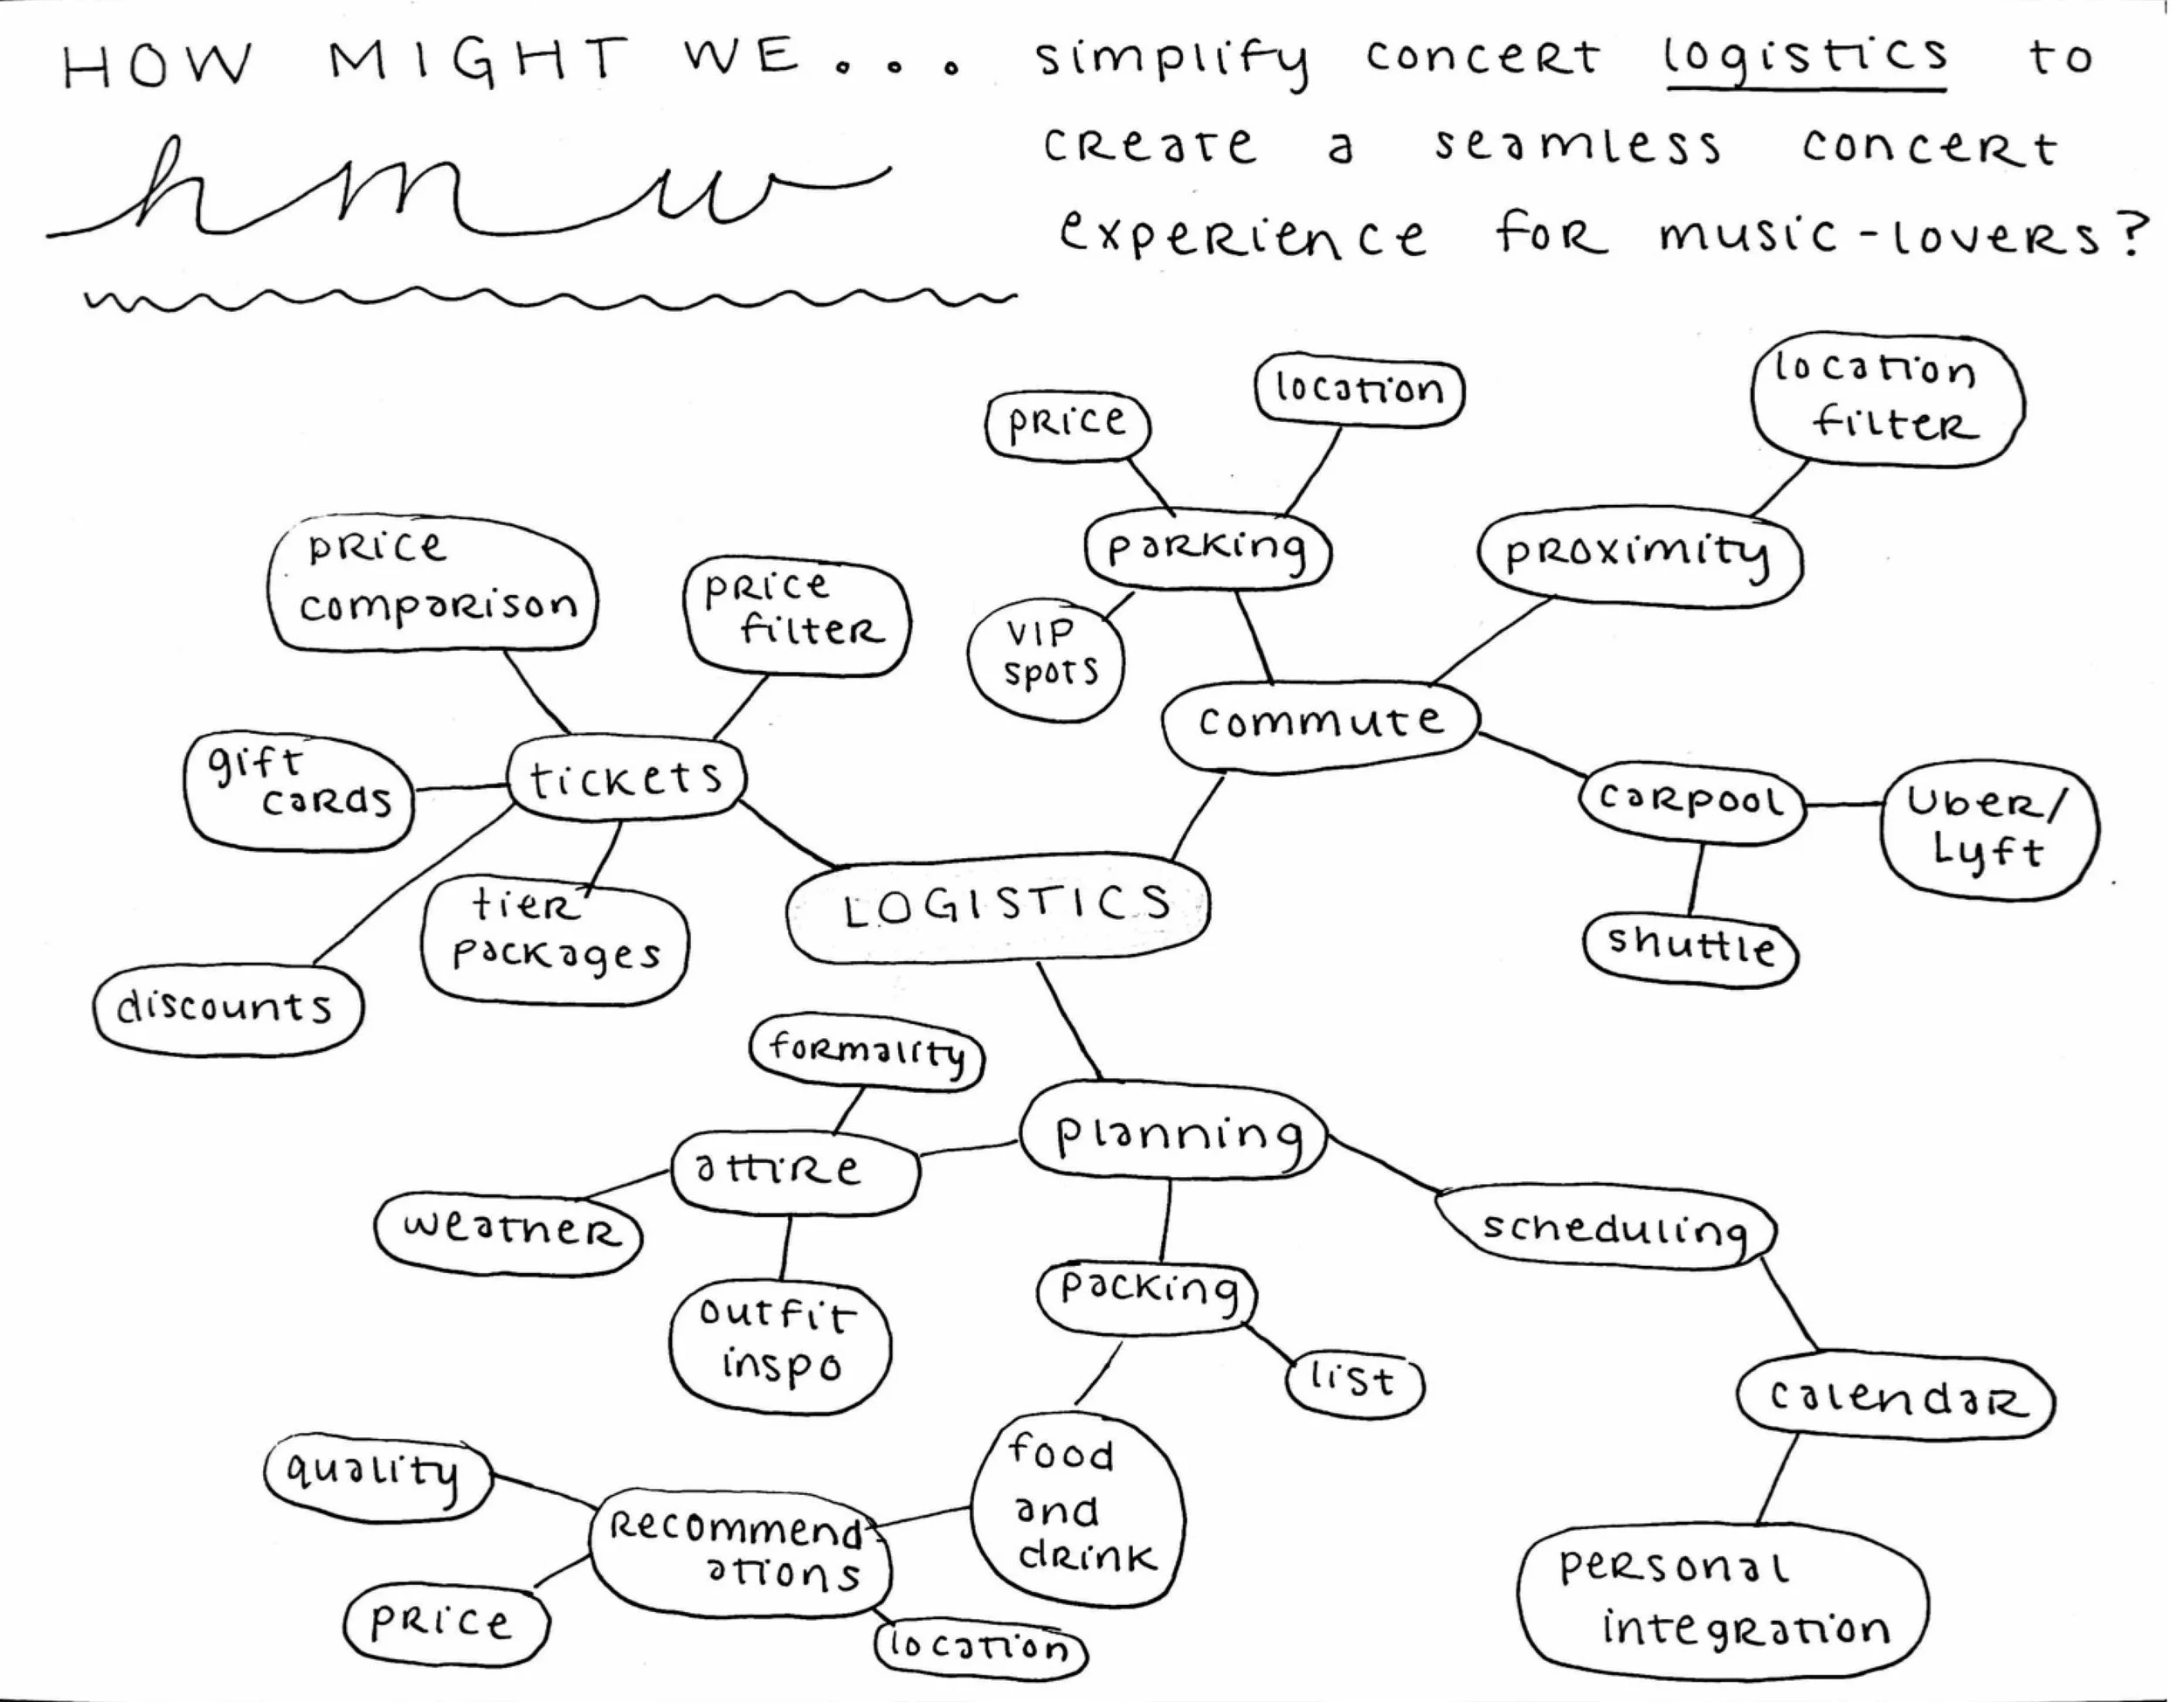 HOW MIGHT WE... simplify concert logistics to
create a seamless concert
experience for music-lovers?
hmw
location
filter
location
price
parking
proximity
price
comparison
price
filter
VIP
spots
commute
gift
cards
tickets
carpool
Uber/
Lyft
LOGISTICS
tier
packages
shuttle
discounts
formality
planning
attire
weather
scheduling
packing
outfit
inspo
list
calendar
food
and
drink
quality
recommend
ations
price
location
personal
integration